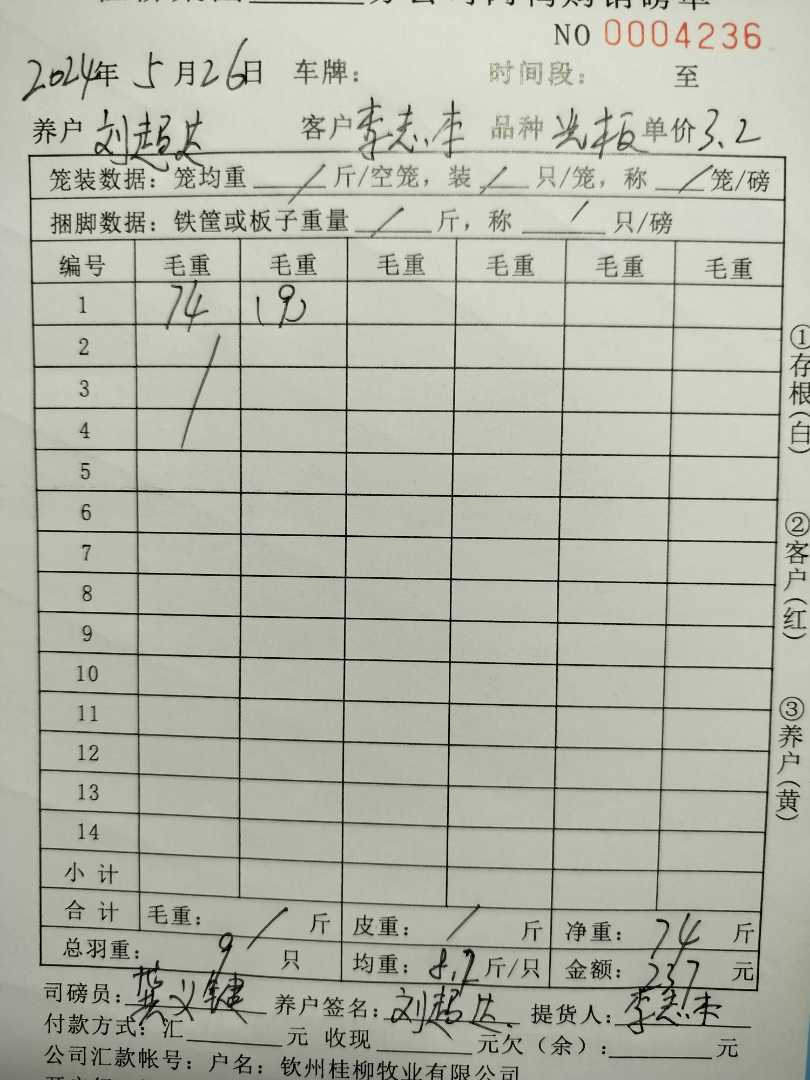 NO 0004236
2024年 5月26日 车牌： 时间段： 至
养户 刘超达 客户 李志杰 品种 光板 单价 3.2
笼装数据：笼均重 / 斤/空笼，装 / 只/笼，称 / 笼/磅
捆脚数据：铁筐或板子重量 / 斤，称 / 只/磅
编号 毛重 毛重 毛重 毛重 毛重 毛重
1 74 (9)
2 /
3
4
5
6
7
8
9
10
11
12
13
14
小 计
合 计 毛重： / 斤 皮重： / 斤 净重： 74 斤
总羽重： 9 只 均重： 8.2 斤/只 金额： 237 元
司磅员： 养户签名： 刘超达 提货人： 李志杰
付款方式：汇 元 收现 元欠（余）： 元
公司汇款帐号：户名：钦州桂柳牧业有限公司
①存根(白)
②客户(红)
③养户(黄)